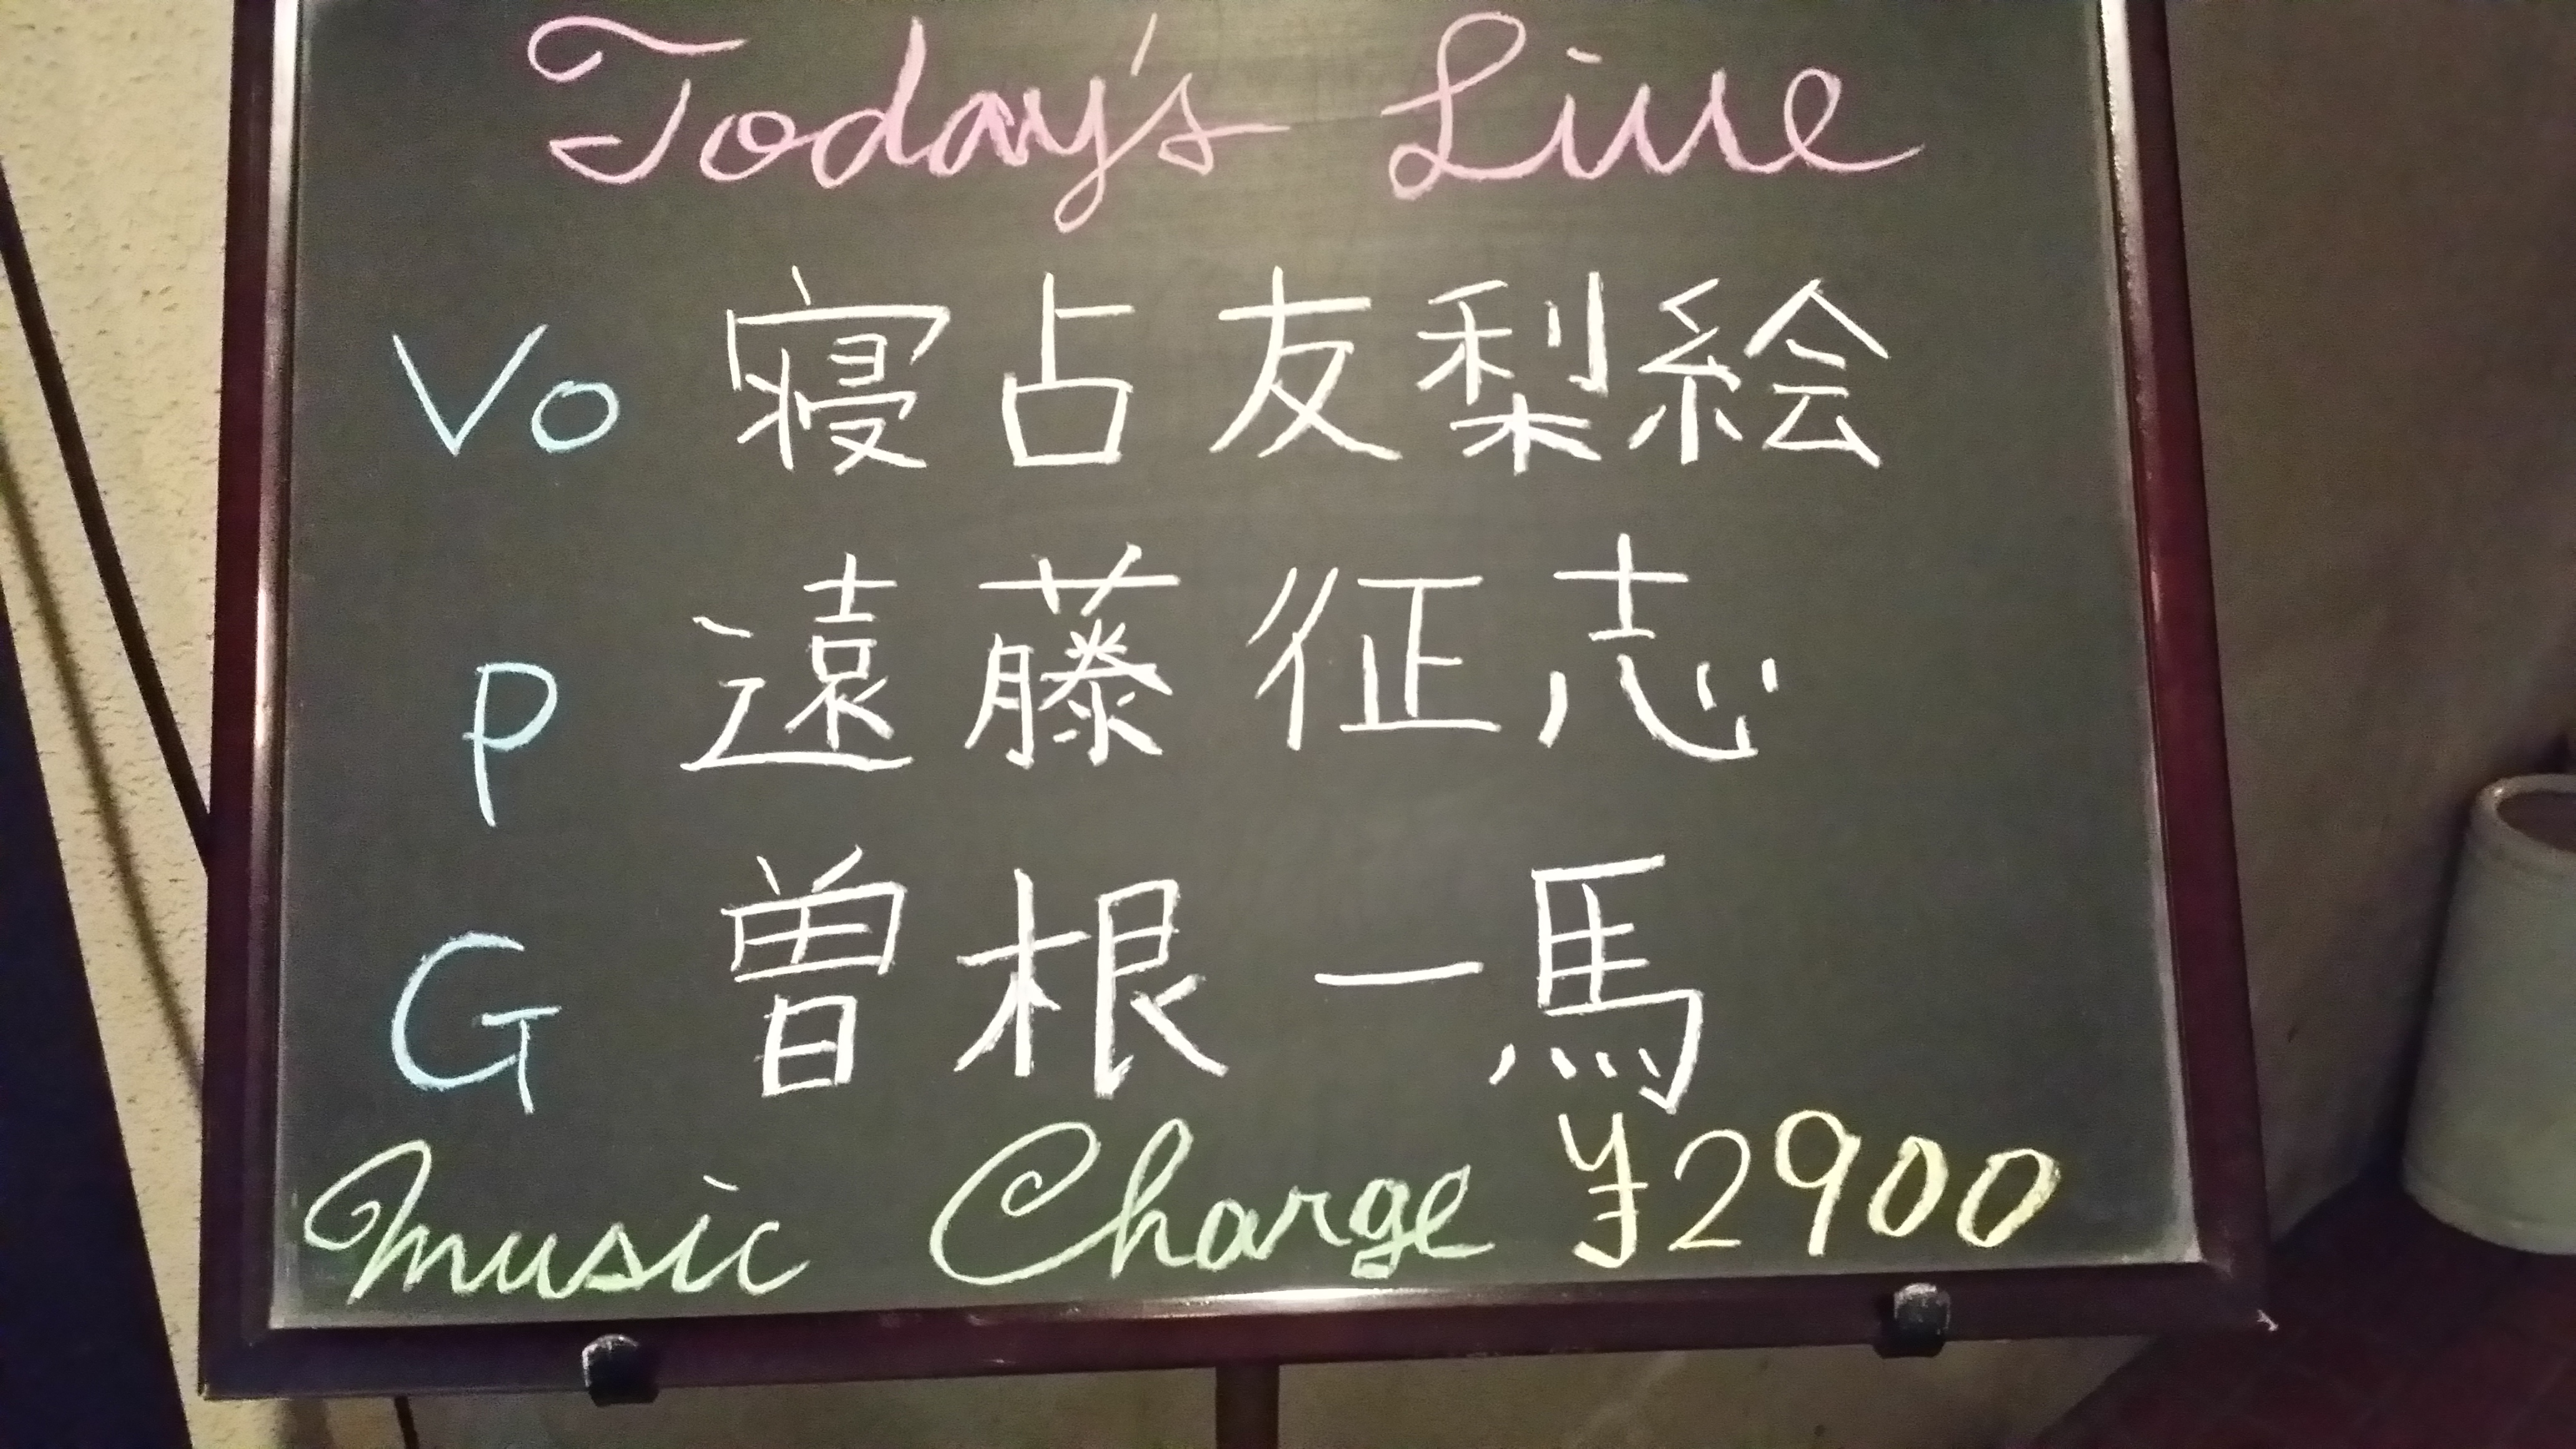 Today's Live
Vo 寝占友梨絵
P 遠藤征志
G 曽根一馬
Music Charge ¥2900